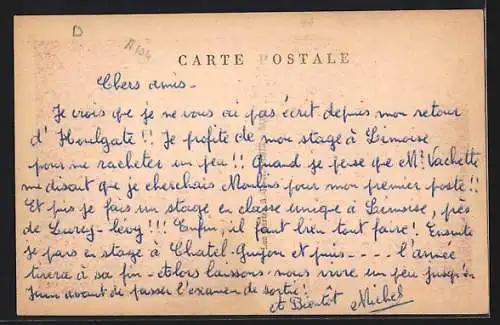 D
CARTE POSTALE
Chers amis -
Je crois que je ne vous ai pas écrit depuis mon retour
d'Houlgate !! Je profite de mon stage à Limoise
pour me racheter un peu !! Quand je pense que Mr Vachette
me disait que je cherchais Moulins pour mon premier poste !!
Et puis je fais un stage en classe unique à Limoise, près
de Lurcy-Lévy !!! Enfin, il faut bien tout faire ! Ensuite
je pars en stage à Chatel-Guyon et puis - - - - l'année
tirera à sa fin - Alors laissons-nous vivre un peu jusqu'en
Juin avant de passer l'examen de sortie !
et Bientôt Michel